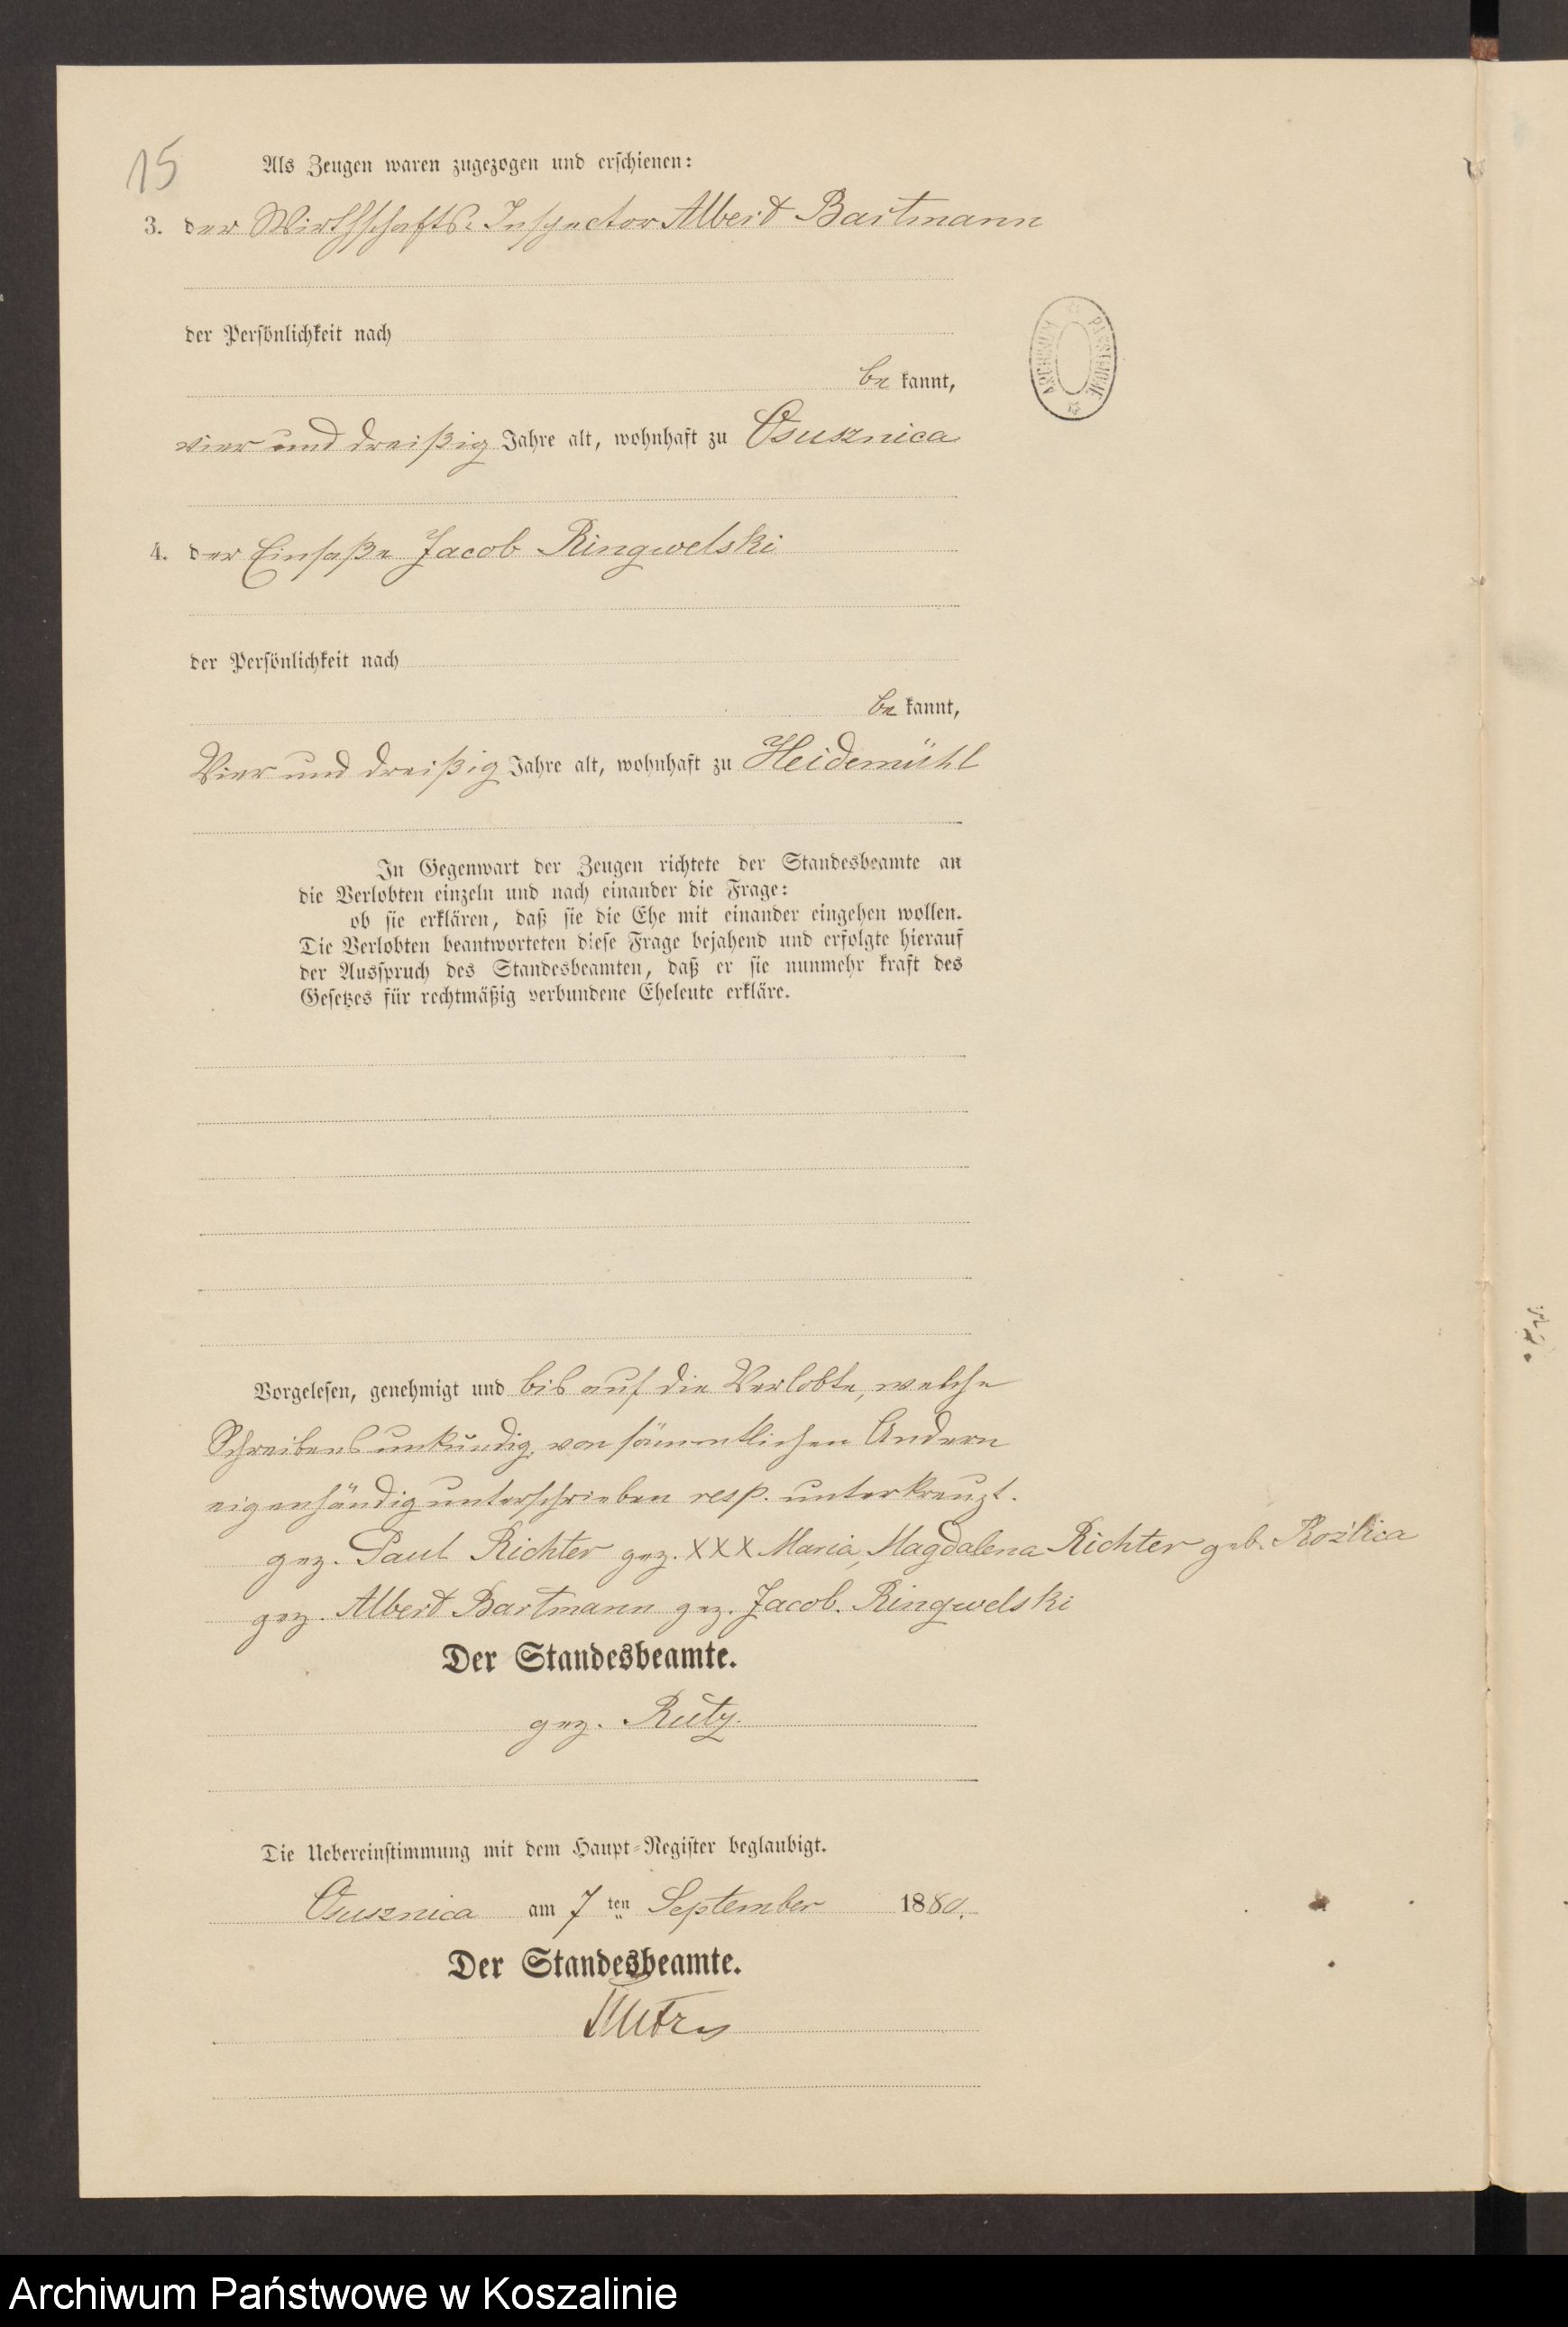 15
Als Zeugen waren zugezogen und erschienen:
3. der Wirthschafts-Inspector Albert Bartmann
der Persönlichkeit nach
be kannt,
vier und dreißig Jahre alt, wohnhaft zu Osusznica
4. der Einsaße Jacob Ringwelski
der Persönlichkeit nach
be kannt,
Vier und dreißig Jahre alt, wohnhaft zu Heidemühl
In Gegenwart der Zeugen richtete der Standesbeamte an
die Verlobten einzeln und nach einander die Frage:
ob sie erklären, daß sie die Ehe mit einander eingehen wollen.
Die Verlobten beantworteten diese Frage bejahend und erfolgte hierauf
der Ausspruch des Standesbeamten, daß er sie nunmehr kraft des
Gesetzes für rechtmäßig verbundene Eheleute erkläre.
Vorgelesen, genehmigt und bis auf die Verlobte, welche
Schreibens unkundig, von sämmtlichen Andern
eigenhändig unterschrieben resp. unterkreuzt.
gez. Paul Richter gez. XXX Maria, Magdalena Richter geb. Rożlica
gez. Albert Bartmann gez. Jacob. Ringwelski
Der Standesbeamte.
gez. Rutz.
Die Uebereinstimmung mit dem Haupt-Register beglaubigt.
Osusznica am 7 ten September 1880.
Der Standesbeamte.
Rutz
ARCHIWUM PAŃSTWOWE
Archiwum Państwowe w Koszalinie